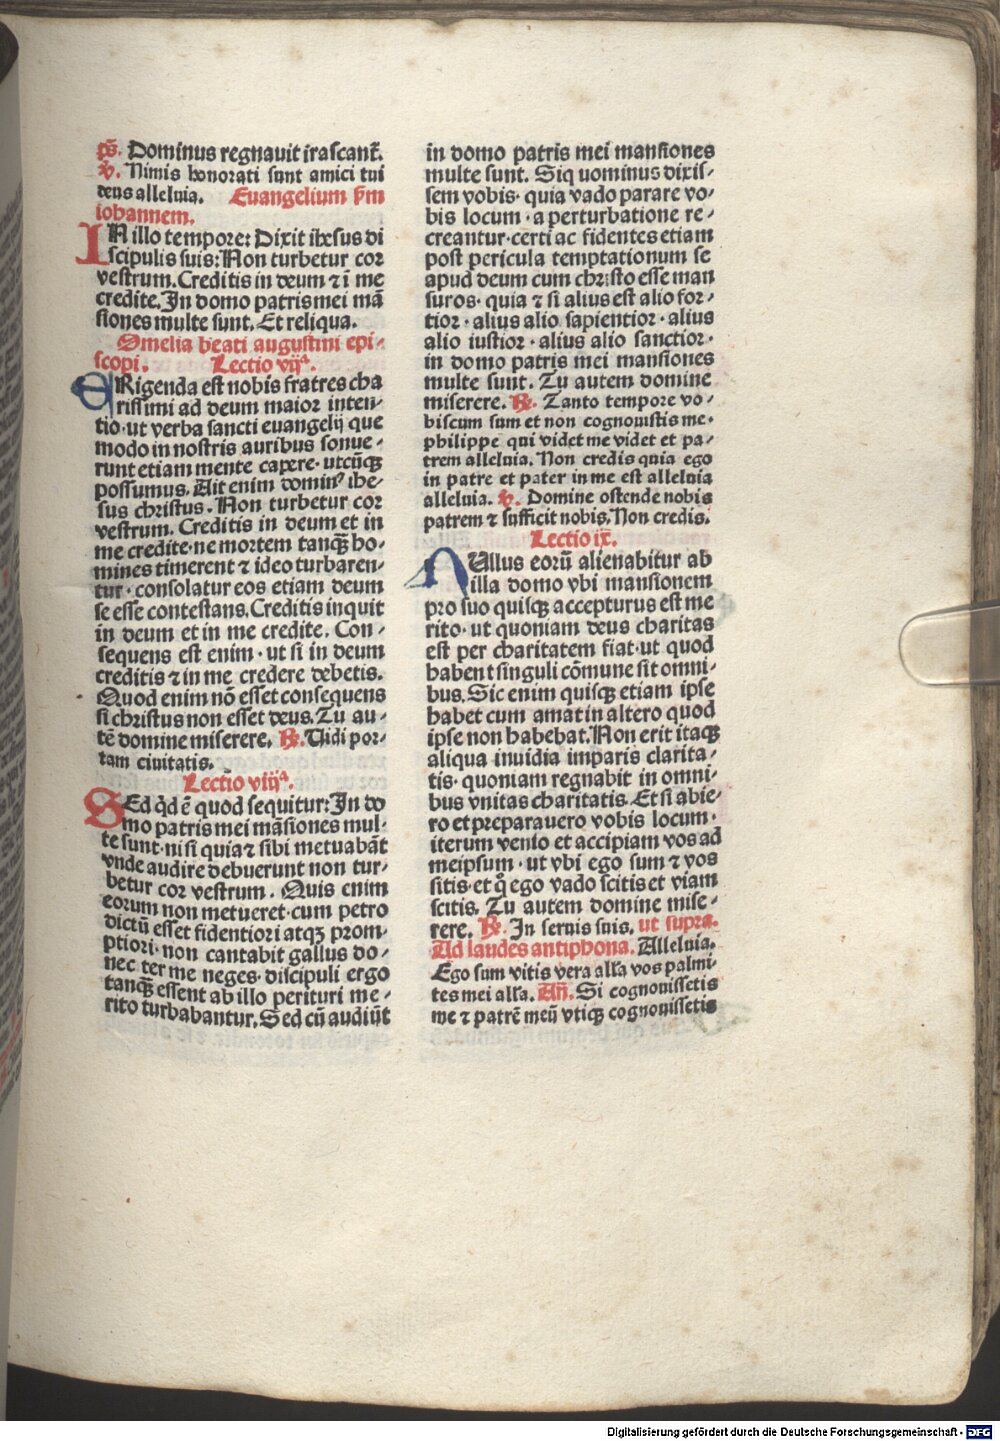 p̄s. Dominus regnauit irascant̄.
v̇. Nimis honorati sunt amici tui
deus alleluia. Euangelium ẜm
iohannem.
IN illo tempore: Dixit ihesus di
scipulis suis: Non turbetur cor
vestrum. Creditis in deum ⁊ ī me
credite. In domo patris mei mā
siones multe sunt. Et reliqua.
Omelia beati augustini epi⸗
scopi. Lectio vijᵃ.
ERigenda est nobis fratres cha
rissimi ad deum maior inten⸗
tio· ut verba sancti euangelij que
modo in nostris auribus sonue⸗
runt etiam mente capere· utcūqꝫ
possumus. Ait enim dominꝰ ihe⸗
sus christus. Non turbetur cor
vestrum. Creditis in deum et in
me credite· ne mortem tanqꝫ ho⸗
mines timerent ⁊ ideo turbaren⸗
tur· consolatur eos etiam deum
se esse contestans. Creditis inquit
in deum et in me credite. Con⸗
sequens est enim· ut si in deum
creditis ⁊ in me credere debetis.
Quod enim nō esset consequens
si christus non esset deus. Tu au⸗
tē domine miserere. ℞. Uidi por⸗
tam ciuitatis.
Lectio viijᵃ.
SEd qͥd ē quod sequitur: In do
mo patris mei māsiones mul⸗
te sunt· ni si quia ⁊ sibi metuabāt
vnde audire debuerunt non tur⸗
betur cor vestrum. Quis enim
eorum non metueret· cum petro
dictū esset fidentiori atqꝫ prom⸗
ptiori· non cantabit gallus do⸗
nec ter me neges· discipuli ergo
tanqꝫ essent ab illo perituri me⸗
rito turbabantur. Sed cū audiūt
in domo patris mei mansiones
multe sunt. Siq uominus dixis⸗
sem vobis· quia vado parare vo⸗
bis locum· a perturbatione re⸗
creantur· certi ac fidentes etiam
post pericula temptationum se
apud deum cum christo esse man
suros· quia ⁊ si alius est alio for⸗
tior· alius alio sapientior· alius
alio iustior· alius alio sanctior·
in domo patris mei mansiones
multe sunt. Tu autem domine
miserere. ℞. Tanto tempore vo⸗
biscum sum et non cognouistis me·
philippe qui videt me videt et pa⸗
trem alleluia. Non credis quia ego
in patre et pater in me est alleluia
alleluia. v̇. Domine ostende nobis
patrem ⁊ sufficit nobis. Non credis.
Lectio ix̄.
NUllus eorū alienabitur ab
illa domo vbi mansionem
pro suo quisqꝫ accepturus est me
rito· ut quoniam deus charitas
est per charitatem fiat· ut quod
habent singuli cōmune sit omni⸗
bus. Sic enim quisqꝫ etiam ipse
habet cum amat in altero quod
ipse non habebat. Non erit itaqꝫ
aliqua inuidia imparis clarita⸗
tis· quoniam regnabit in omni⸗
bus vnitas charitatis. Et si abie⸗
ro et preparauero vobis locum·
iterum venio et accipiam vos ad
meipsum· ut vbi ego sum ⁊ vos
sitis· et qͦ ego vado scitis et viam
scitis. Tu autem domine mise⸗
rere. ℞. In seruis suis. ut supra.
Ad laudes antiphona. Alleluia.
Ego sum vitis vera alľa vos palmi⸗
tes mei alľa. Añ. Si cognouissetis
me ⁊ patrē meū vtiqꝫ cognouissetis
Digitalisierung gefördert durch die Deutsche Forschungsgemeinschaft - DFG